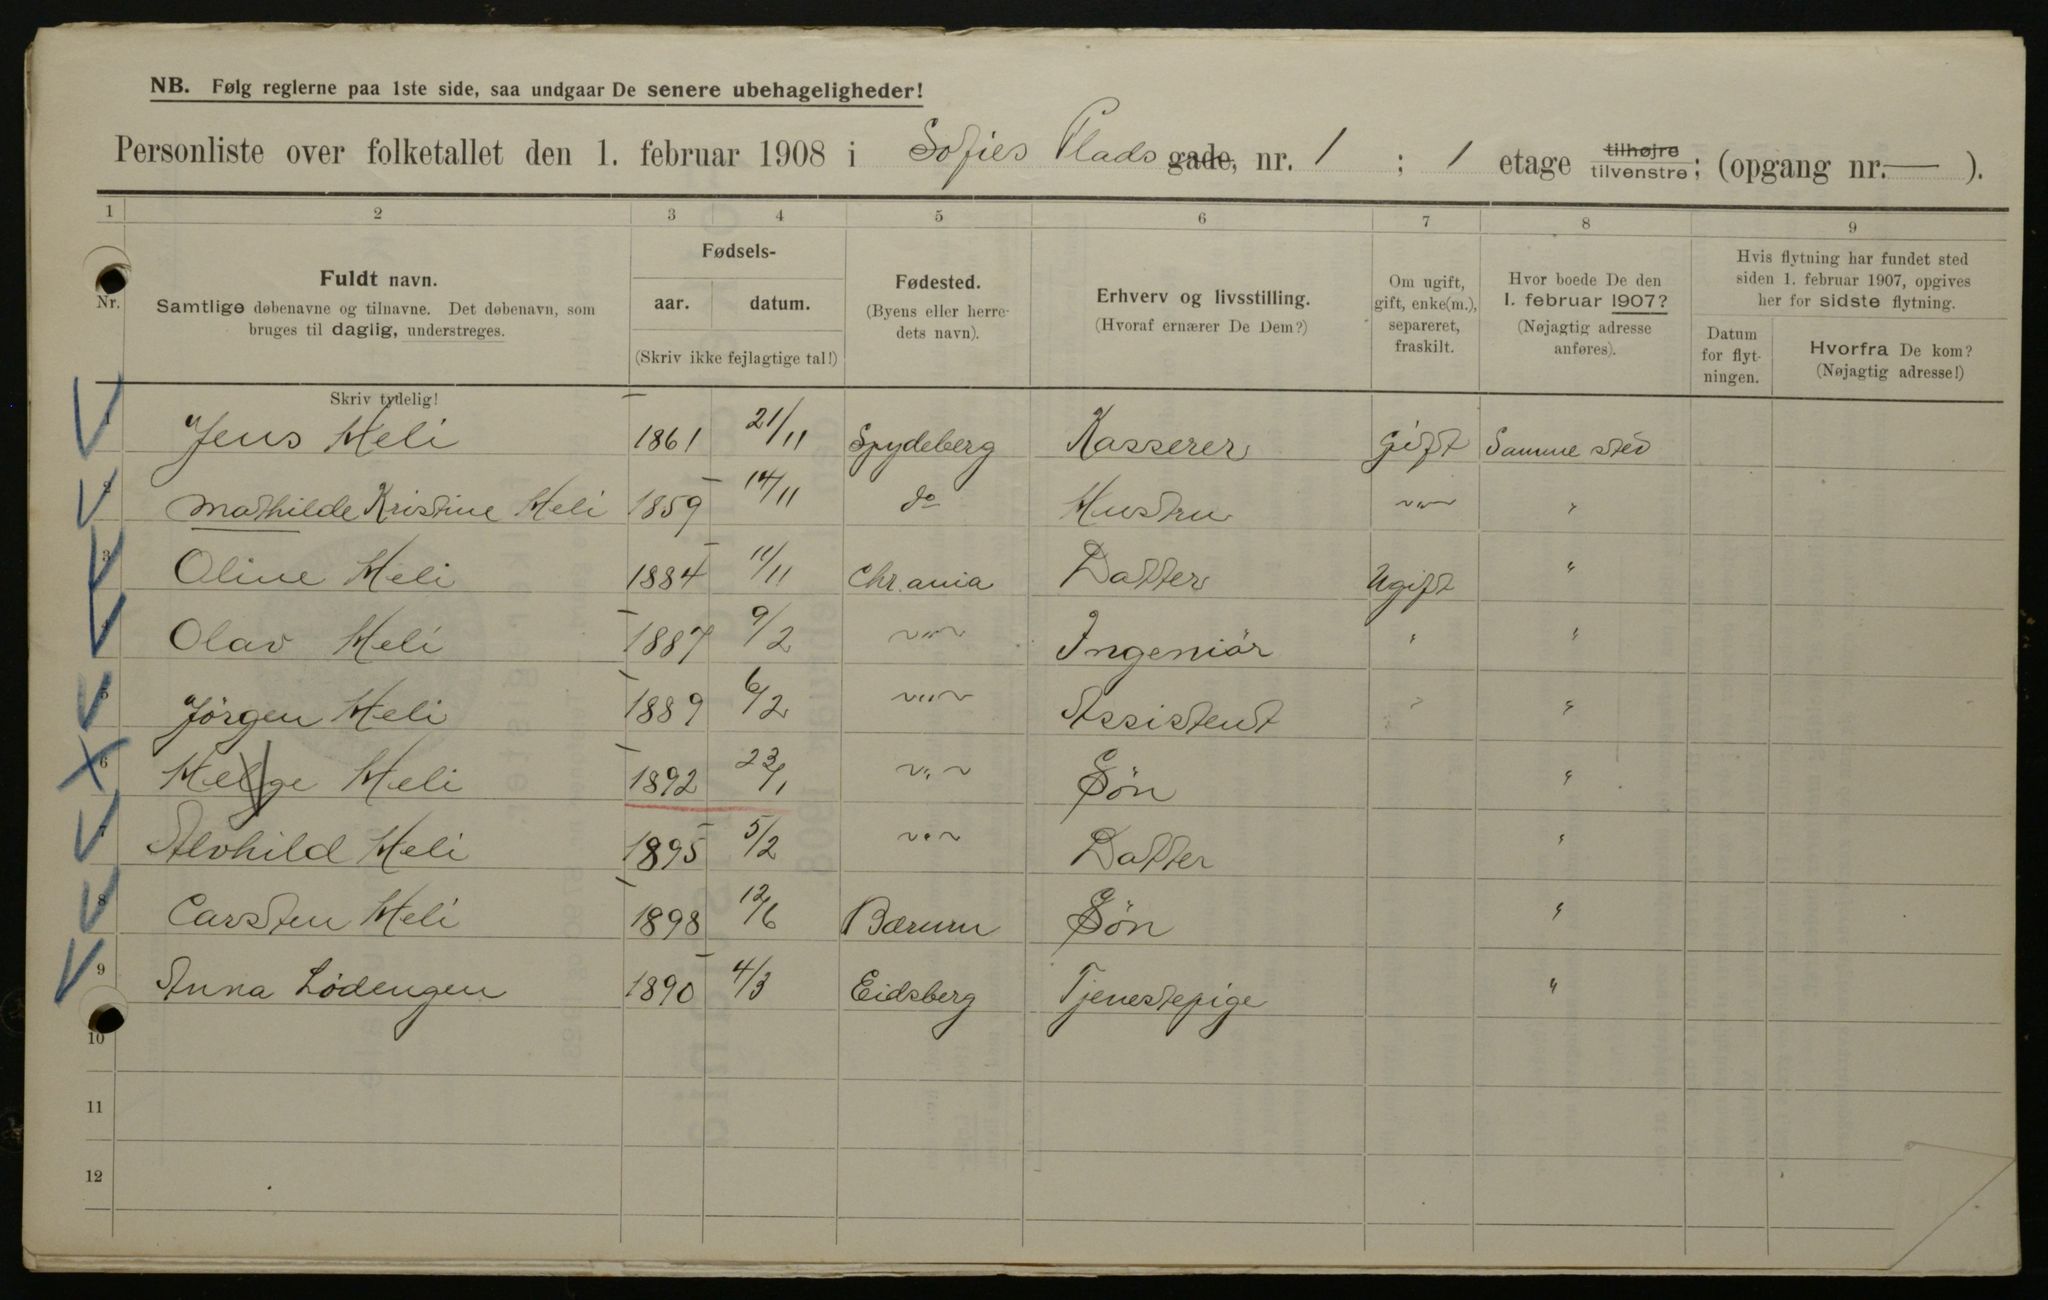 NB. Følg reglerne paa 1ste side, saa undgaar De senere ubehageligheder!
Personliste over folketallet den 1. februar 1908 i Sofies Plads gade, nr. 1 ; 1 etage tilhøjre tilvenstre; (opgang nr. — ).
1 2 3 4 5 6 7 8 9
Nr.
Fuldt navn.
Samtlige døbenavne og tilnavne. Det døbenavn, som
bruges til daglig, understreges.
Skriv tydelig!
Fødsels-
aar. datum.
(Skriv ikke fejlagtige tal!)
Fødested.
(Byens eller herre-
dets navn).
Erhverv og livsstilling.
(Hvoraf ernærer De Dem?)
Om ugift,
gift, enke(m.),
separeret,
fraskilt.
Hvor boede De den
1. februar 1907?
(Nøjagtig adresse
anføres).
Hvis flytning har fundet sted
siden 1. februar 1907, opgives
her for sidste flytning.
Datum
for flyt-
ningen.
Hvorfra De kom?
(Nøjagtig adresse!)
1 Jens Heli 1861 21/11 Spydeberg Kasserer Gift Samme sted
2 Mathilde Kristine Heli 1859 14/11 do Hustru " "
3 Oline Heli 1884 11/11 Chr.ania Datter Ugift "
4 Olav Heli 1887 9/2 " Ingeniör " "
5 Jörgen Heli 1889 6/2 " Assistent " "
6 Helge Heli 1892 23/1 " Sön "
7 Alvhild Heli 1895 5/2 " Datter "
8 Carsten Heli 1898 12/6 Bærum Sön "
9 Anna Lödengen 1890 4/3 Eidsberg Tjenestepige "
10
11
12